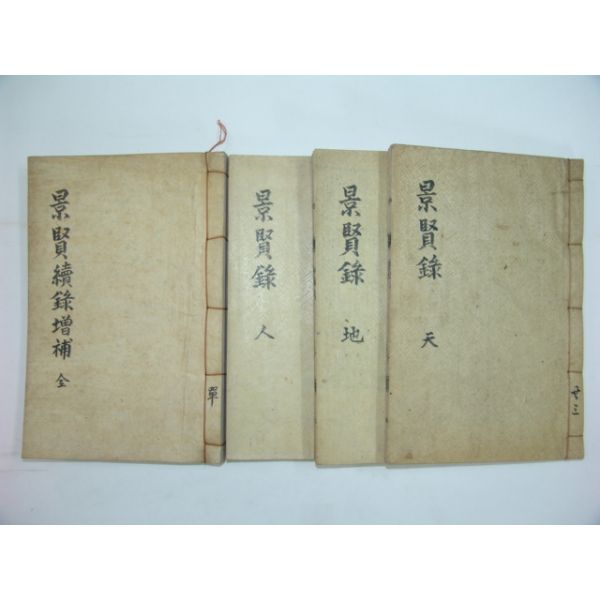 景賢錄 天
共三
景賢錄 地
景賢錄 人
景賢續錄增補 全
單